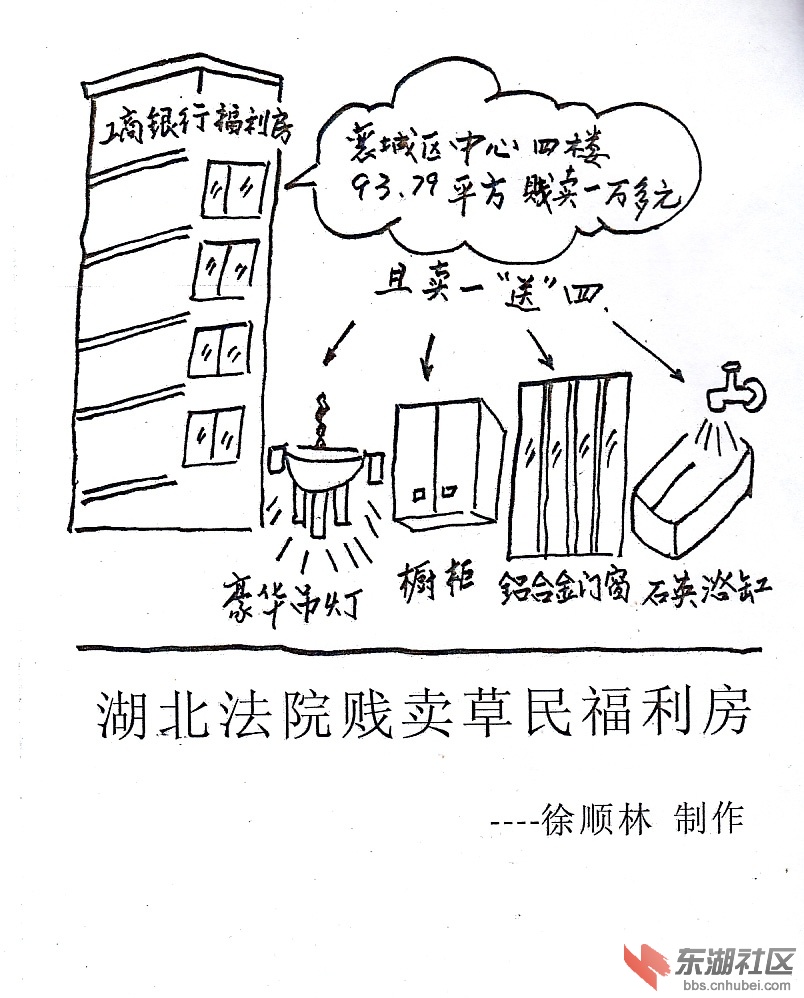 工商银行福利房
襄城区中心四楼
93.79平方 贱卖一万多元
且卖一“送”四.
豪华吊灯
橱柜
鋁合金门窗
石英浴缸
湖北法院贱卖草民福利房
----徐顺林 制作
东湖社区
bbs.cnhubei.com